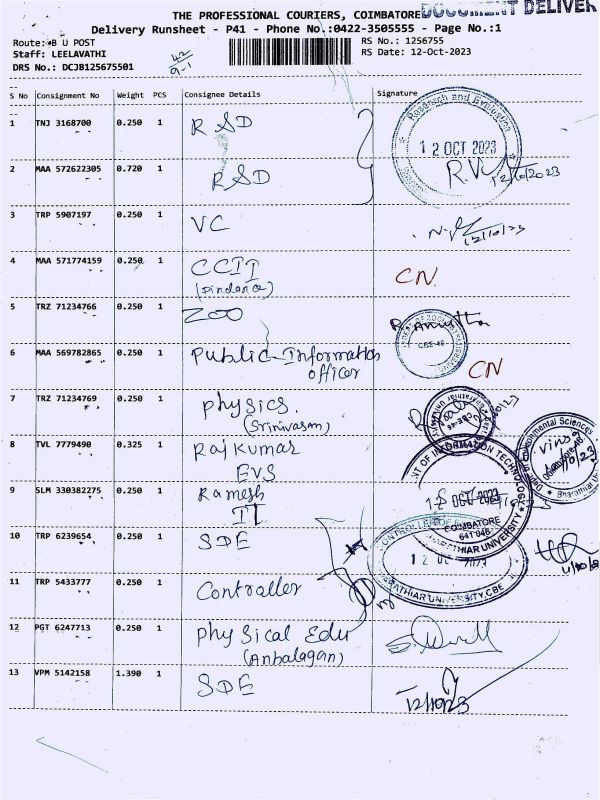 THE PROFESSIONAL COURIERS, COIMBATORE DOCUMENT DELIVER
Delivery Runsheet - P41 - Phone No.:0422-3505555 - Page No.:1
Route: B U POST
RS No.: 1256755
Staff: LEELAVATHI
RS Date: 12-Oct-2023
DRS No.: DCJB125675501
42
9-1
S No Consignment No Weight PCS Consignee Details Signature
1 TNJ 3168700 0.250 1 RSD
Research and Evaluation
12 OCT 2023
2 MAA 572622305 0.720 1 RSD R.V 12/10/2023
3 TRP 5907197 0.250 1 VC 12/10/23
4 MAA 571774159 0.250 1 CCII CN
5 TRZ 71234766 0.250 1 ZOO
CBE-46
6 MAA 569782865 0.250 1 Public Information CN
officer
7 TRZ 71234769 0.250 1 physics.
(Srinivasan)
8 TVL 7779490 0.325 1 Rajkumar
EVS
Environmental Sciences
9 SLM 330382275 0.250 1 Ramesh
IT
OF INFORMATION TECHNOLOGY
OCT 2023
COIMBATORE
641 046
BHARATHIAR UNIVERSITY
10 TRP 6239654 0.250 1 SDE
CONTROLLER OF
12
2023
BHARATHIAR UNIVERSITY, CBE
11 TRP 5433777 0.250 1 Controller
12 PGT 6247713 0.250 1 physical Edu
(Anbalagan)
13 VPM 5142158 1.390 1 SDE 12/10/23